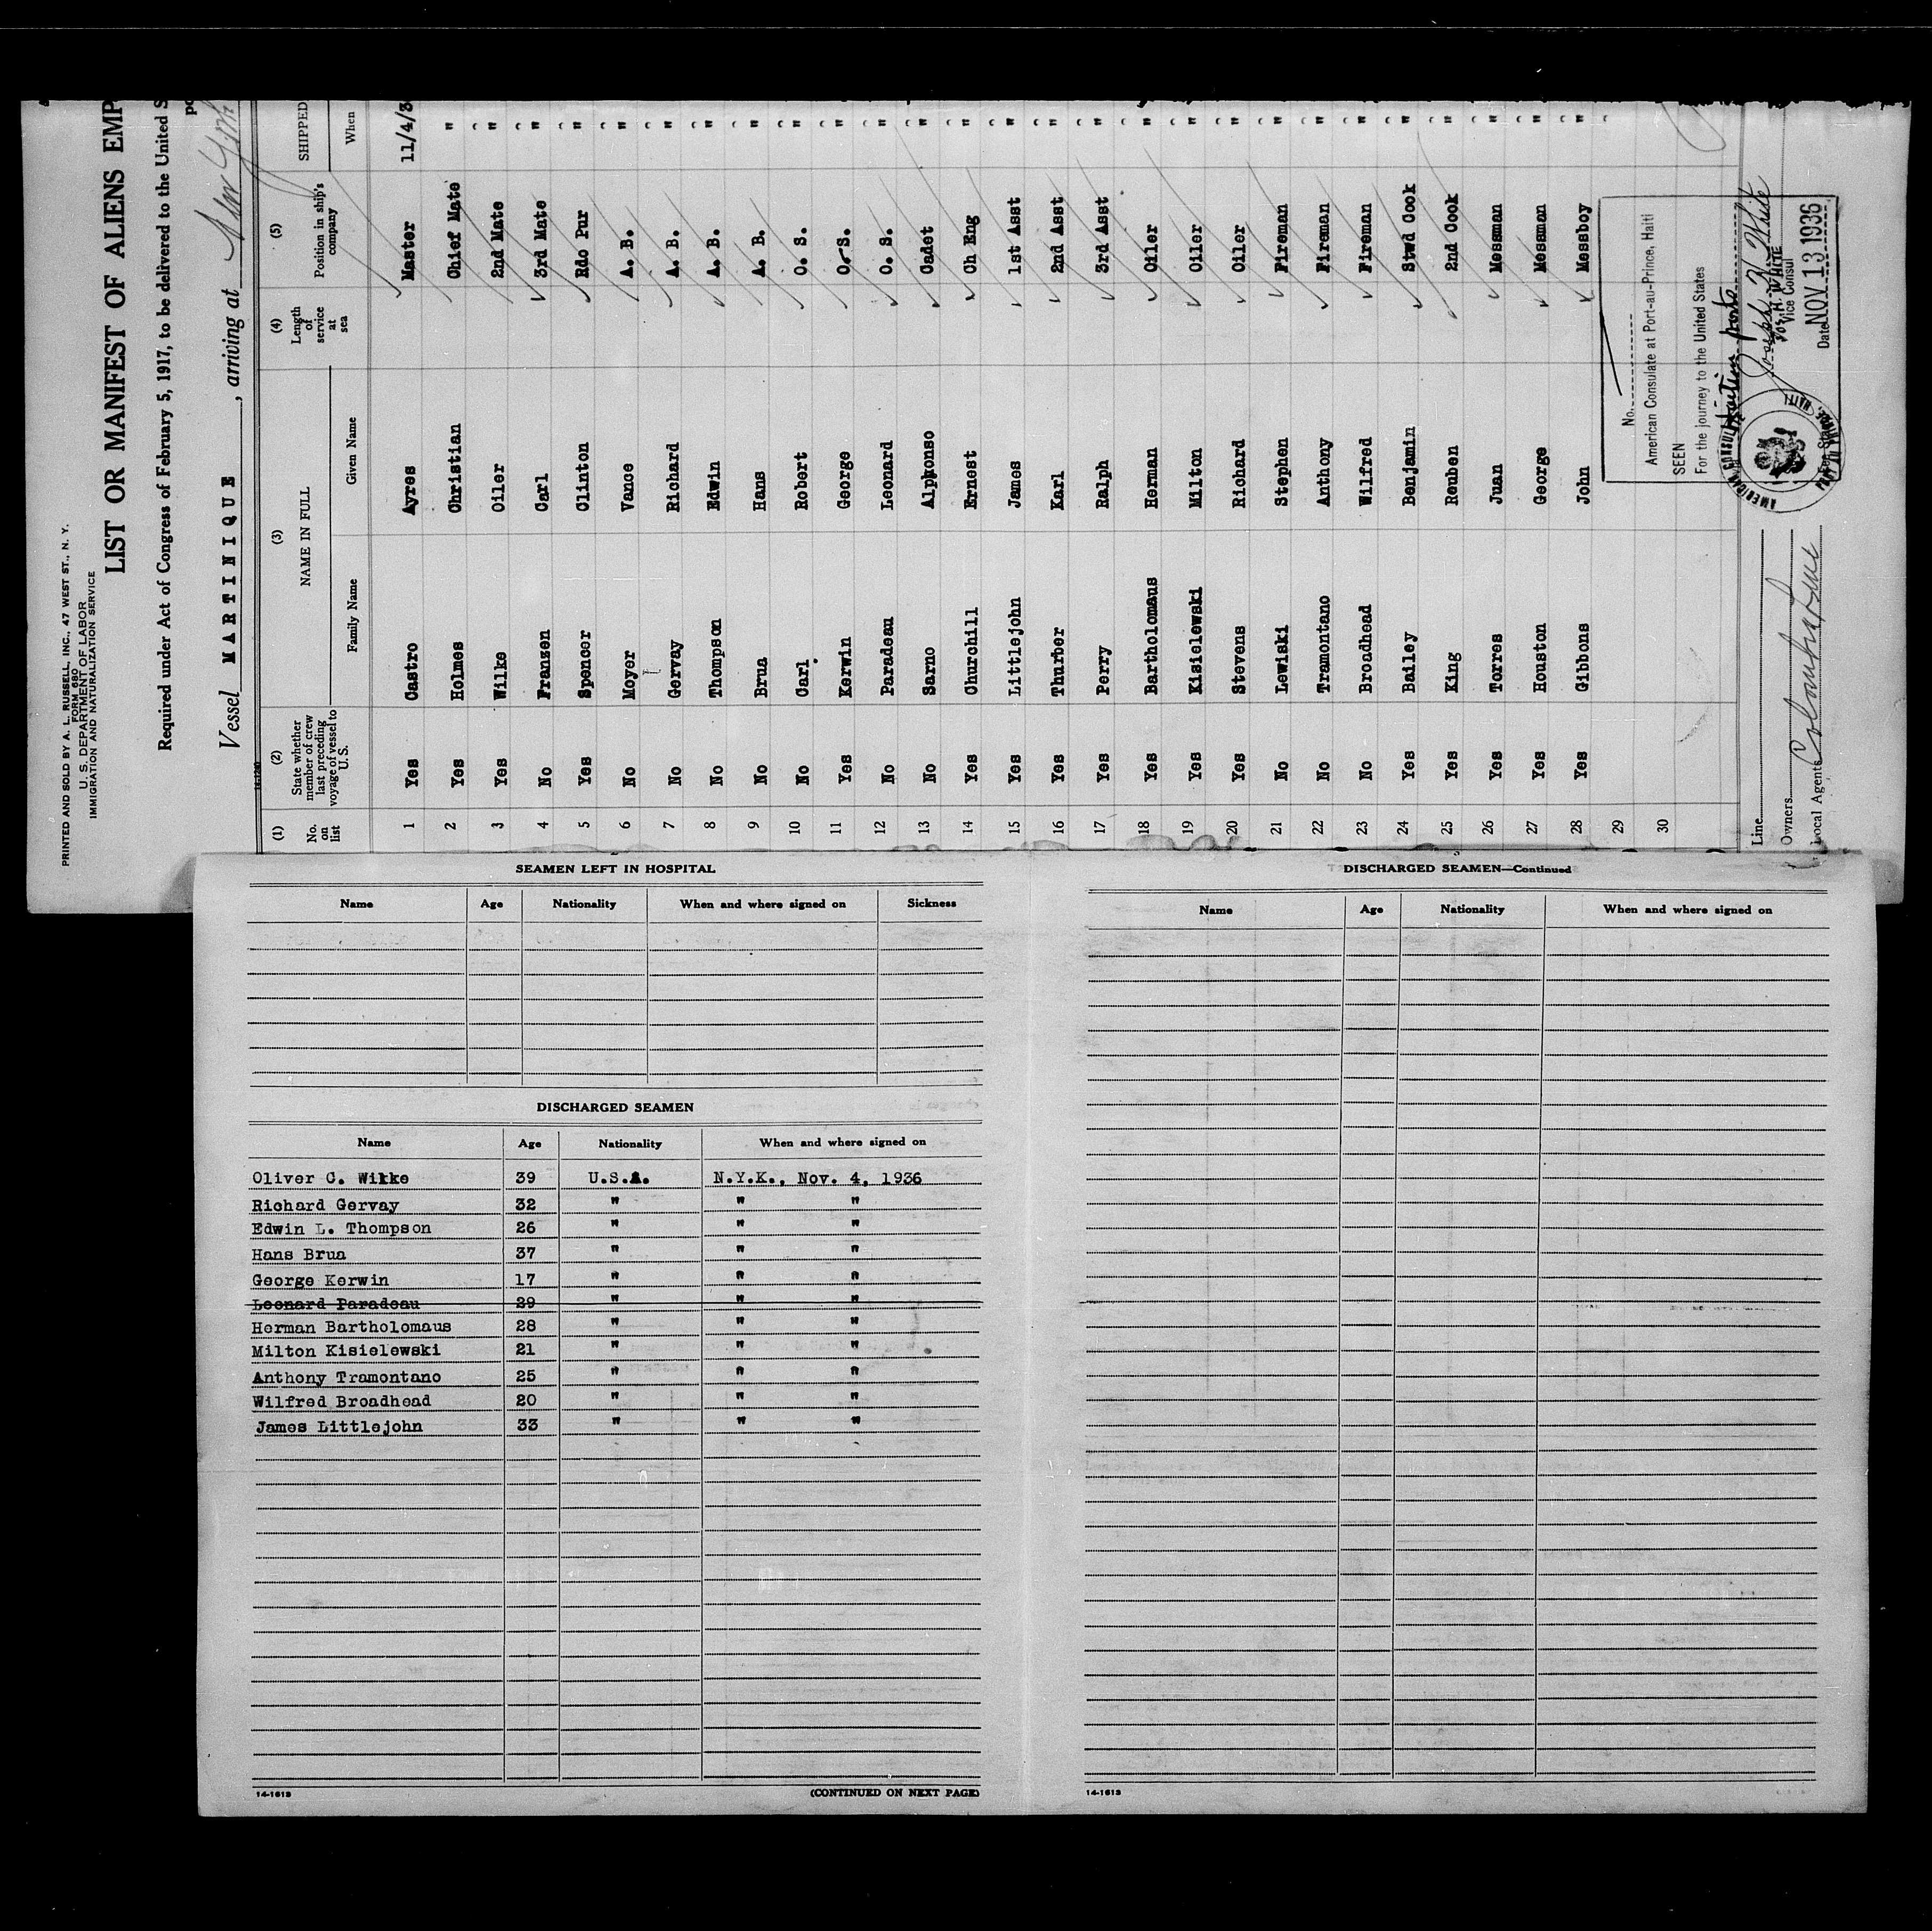 PRINTED AND SOLD BY A. L. RUSSELL, INC., 47 WEST ST., N. Y.
FORM 680
U. S. DEPARTMENT OF LABOR
IMMIGRATION AND NATURALIZATION SERVICE
LIST OR MANIFEST OF ALIENS EMP
Required under Act of Congress of February 5, 1917, to be delivered to the United S
Vessel MARTINIQUE, arriving at New York
(1) (2) (3) (4) (5) SHIPPED
No. on list State whether member of crew last preceding voyage of vessel to U. S. NAME IN FULL Length of service at sea Position in ship's company When
Family Name Given Name
1 Yes Castro Ayres Master 11/4/3
2 Yes Holmes Christian Chief Mate "
3 Yes Wilke Oiler 2nd Mate "
4 No Franzen Carl 3rd Mate "
5 Yes Spencer Clinton Rdo Pur "
6 No Moyer Vance A. B. "
7 No Gervay Richard A. B. "
8 No Thompson Edwin A. B. "
9 No Brua Hans A. B. "
10 No Carl Robert O. S. "
11 Yes Kerwin George O. S. "
12 No Paradeau Leonard O. S. "
13 No Sarno Alphonso Cadet "
14 Yes Churchill Ernest Ch Eng "
15 Yes Littlejohn James 1st Asst "
16 Yes Thurber Karl 2nd Asst "
17 Yes Perry Ralph 3rd Asst "
18 Yes Bartholomaus Herman Oiler "
19 Yes Kisielewski Milton Oiler "
20 Yes Stevens Richard Oiler "
21 No Lewiski Stephen Fireman "
22 No Tramontano Anthony Fireman "
23 No Broadhead Wilfred Fireman "
24 Yes Bailey Benjamin Stwd Cook "
25 Yes King Reuben 2nd Cook "
26 Yes Torres Juan Messman "
27 Yes Houston George Messman "
28 Yes Gibbons John Messboy "
29
30
No.
American Consulate at Port-au-Prince, Haiti
SEEN
For the journey to the United States
Haitian ports
Joseph H. White
Jos. H. WHITE
Vice Consul
Date NOV 13 1936
Line
Owners
Local Agents Colombian Line
SEAMEN LEFT IN HOSPITAL
Name Age Nationality When and where signed on Sickness
DISCHARGED SEAMEN
Name Age Nationality When and where signed on
Oliver C. Wilke 39 U.S.A. N.Y.K., Nov. 4, 1936
Richard Gervay 32 " " "
Edwin L. Thompson 26 " " "
Hans Brua 37 " " "
George Kerwin 17 " " "
Leonard Paradeau 29 " " "
Herman Bartholomaus 28 " " "
Milton Kisielewski 21 " " "
Anthony Tramontano 25 " " "
Wilfred Broadhead 20 " " "
James Littlejohn 33 " " "
14-1613 (CONTINUED ON NEXT PAGE)
DISCHARGED SEAMEN—Continued
Name Age Nationality When and where signed on
14-1613